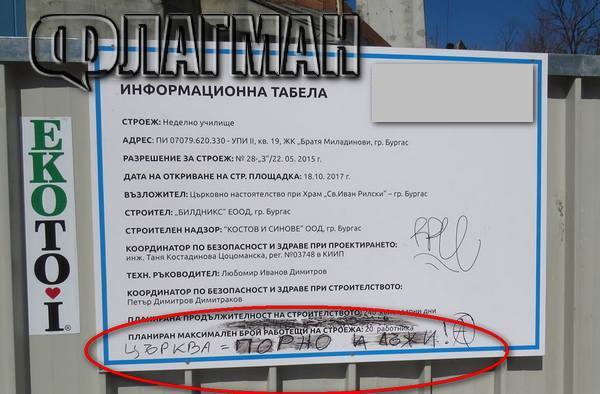 ФЛАГМАН
ИНФОРМАЦИОННА ТАБЕЛА
СТРОЕЖ: Неделно училище
АДРЕС: ПИ 07079.620.330 - УПИ II, кв. 19, ЖК „Братя Миладинови, гр. Бургас
РАЗРЕШЕНИЕ ЗА СТРОЕЖ: № 28-„З"/22. 05. 2015 г.
ДАТА НА ОТКРИВАНЕ НА СТР. ПЛОЩАДКА: 18.10. 2017 г.
ВЪЗЛОЖИТЕЛ: Църковно настоятелство при Храм „Св.Иван Рилски" – гр. Бургас
СТРОИТЕЛ: „БИЛДНИКС" ЕООД, гр. Бургас
СТРОИТЕЛЕН НАДЗОР: "КОСТОВ И СИНОВЕ" ООД, гр. Бургас
КООРДИНАТОР ПО БЕЗОПАСНОСТ И ЗДРАВЕ ПРИ ПРОЕКТИРАНЕТО:
инж. Таня Костадинова Цоцоманска, рег. №03748 в КИИП
ТЕХН. РЪКОВОДИТЕЛ: Любомир Иванов Димитров
КООРДИНАТОР ПО БЕЗОПАСНОСТ И ЗДРАВЕ ПРИ СТРОИТЕЛСТВОТО:
Петър Димитров Димитраков
ПЛАНИРАНА ПРОДЪЛЖИТЕЛНОСТ НА СТРОИТЕЛСТВОТО: 240 дни
ПЛАНИРАН МАКСИМАЛЕН БРОЙ РАБОТЕЩИ НА СТРОЕЖА: 20 работника
ЦЪРКВА = ПОРНО И ЛЪЖИ!
EKOTO.I